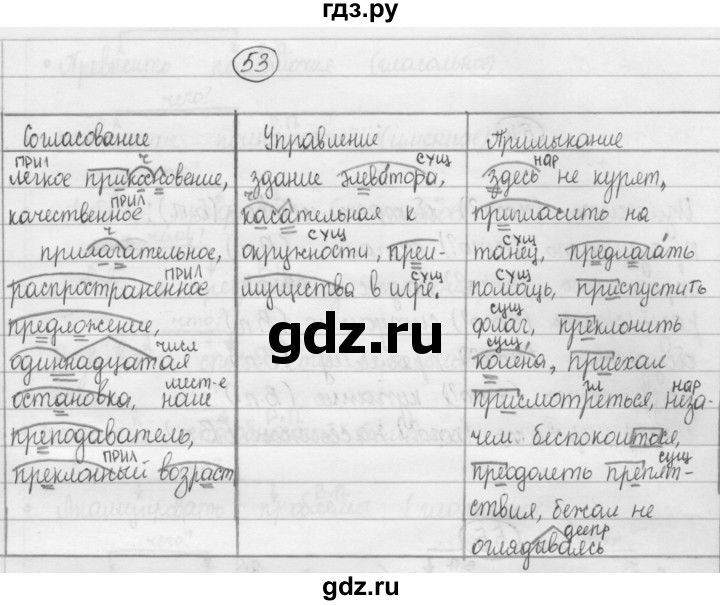 гдз.ру
53
Согласование
прил
лёгкое прикосновение,
качественное прил
прилагательное,
распространённое прил
предложение,
одиннадцатая числ
остановка, мест-е наше
преподаватель,
преклонный прил возраст
Управление
здание элеватора, сущ
касательная к
окружности, сущ преи-
мущества в игре. сущ
Примыкание
здесь нар не курят,
пригласить на
танец, сущ предлагать
помощь, сущ приспустить
флаг, сущ преклонить
колена, сущ приехал
присмотреться, гл неза- нар
чем беспокоиться,
преодолеть препят- сущ
ствия, бежал не
оглядываясь деепр
gdz.ru
gdz.ru